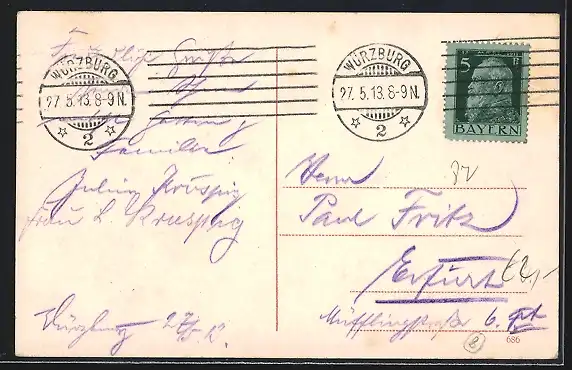 WÜRZBURG
27.5.13.8-9N.
2
WÜRZBURG
27.5.13.8-9N.
2
5 Pf
BAYERN
Familie
Julius Kruspig
Frau L. Kruspig
Würzburg 27/5. 13.
Herrn
Paul Fritz
Erfurt
6. pt
€2,-
8
686